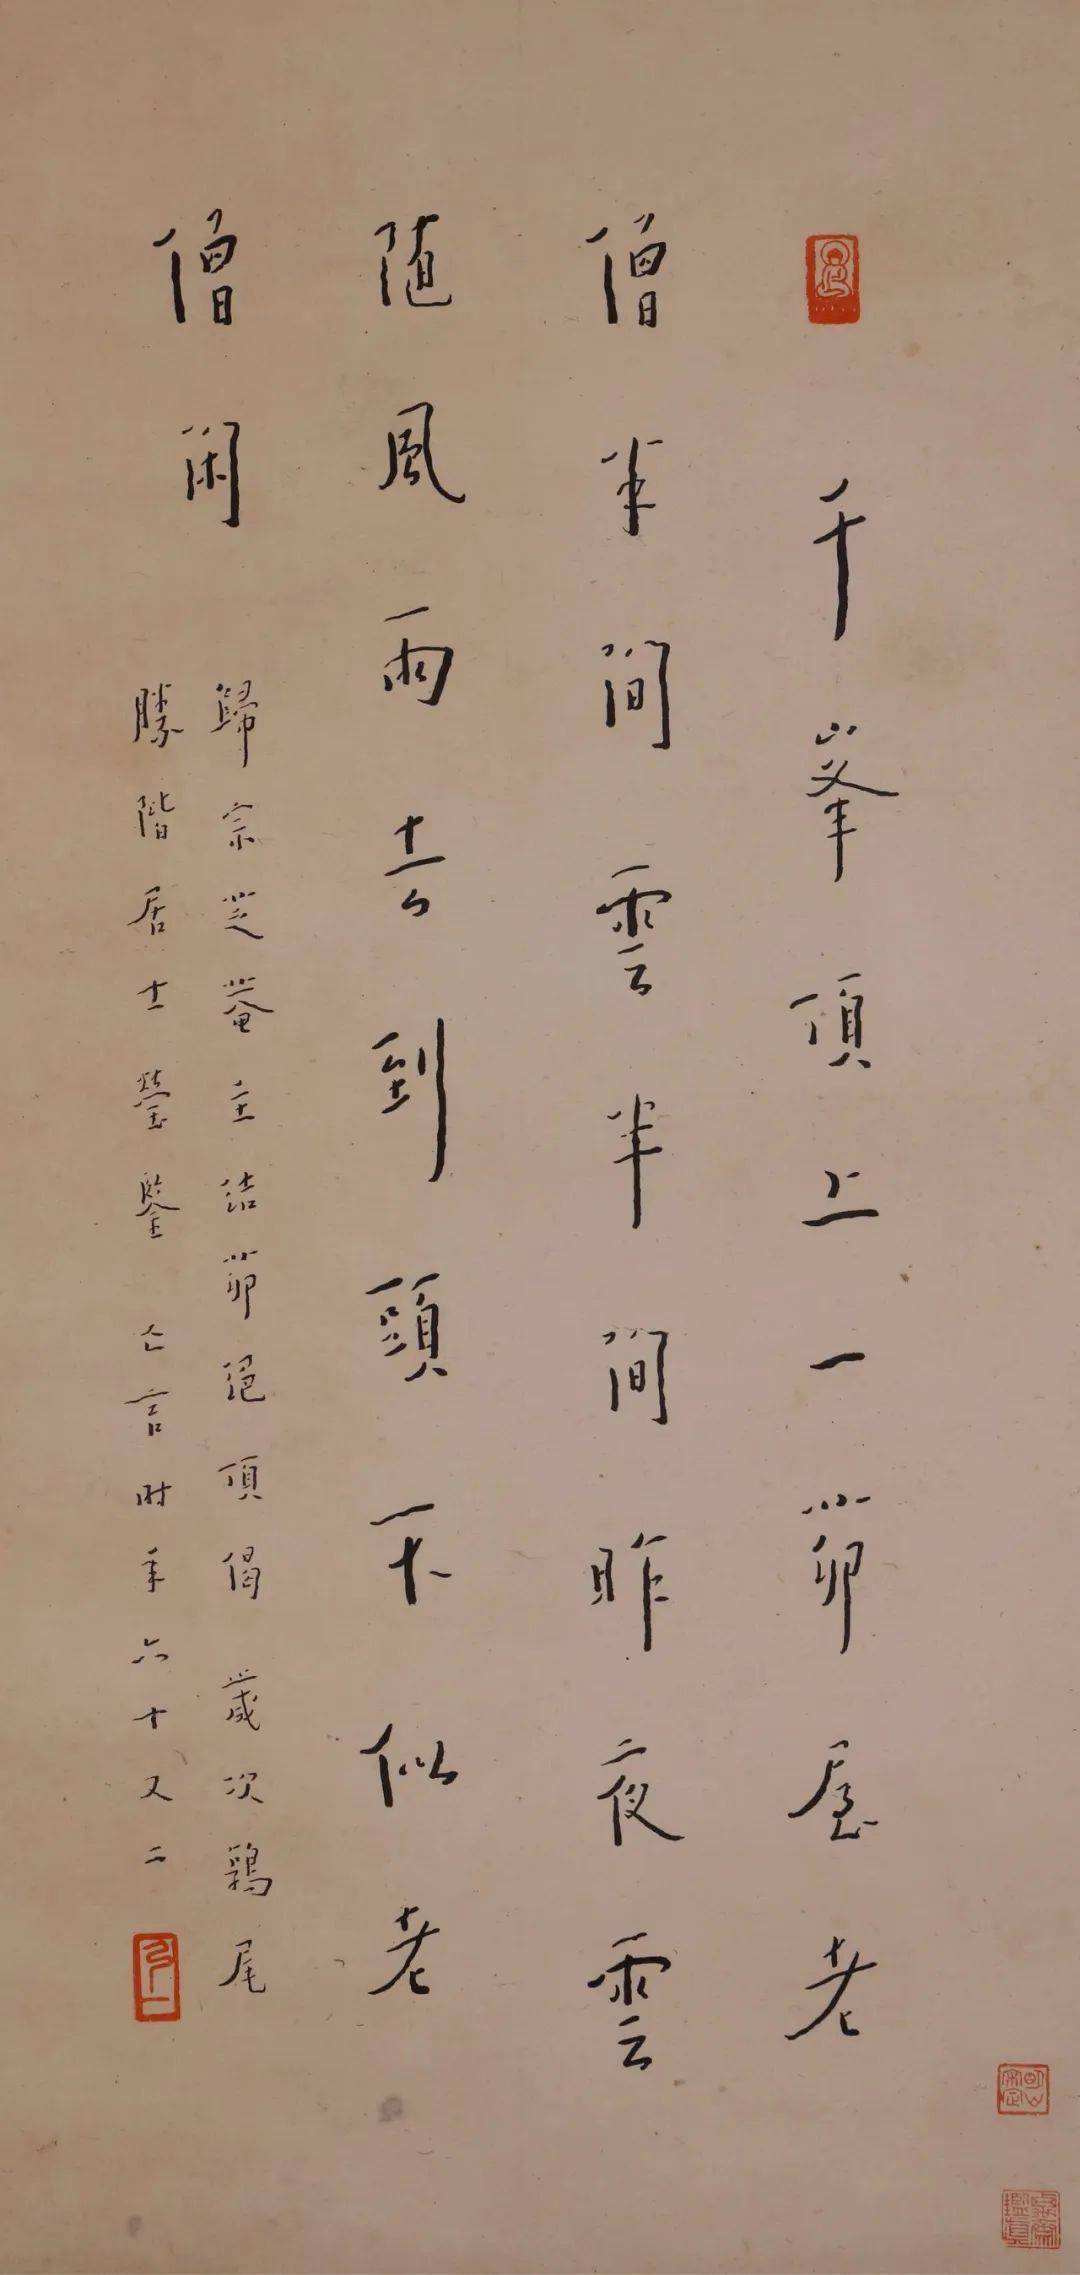 千峯頂上一茆屋老
僧半間雲半間昨夜雲
随風雨去到頭不似老
僧閑
歸宗芝菴主結茆絕頂偈 歲次鶉尾
勝階居士瑩鑒 亡言時年六十又二